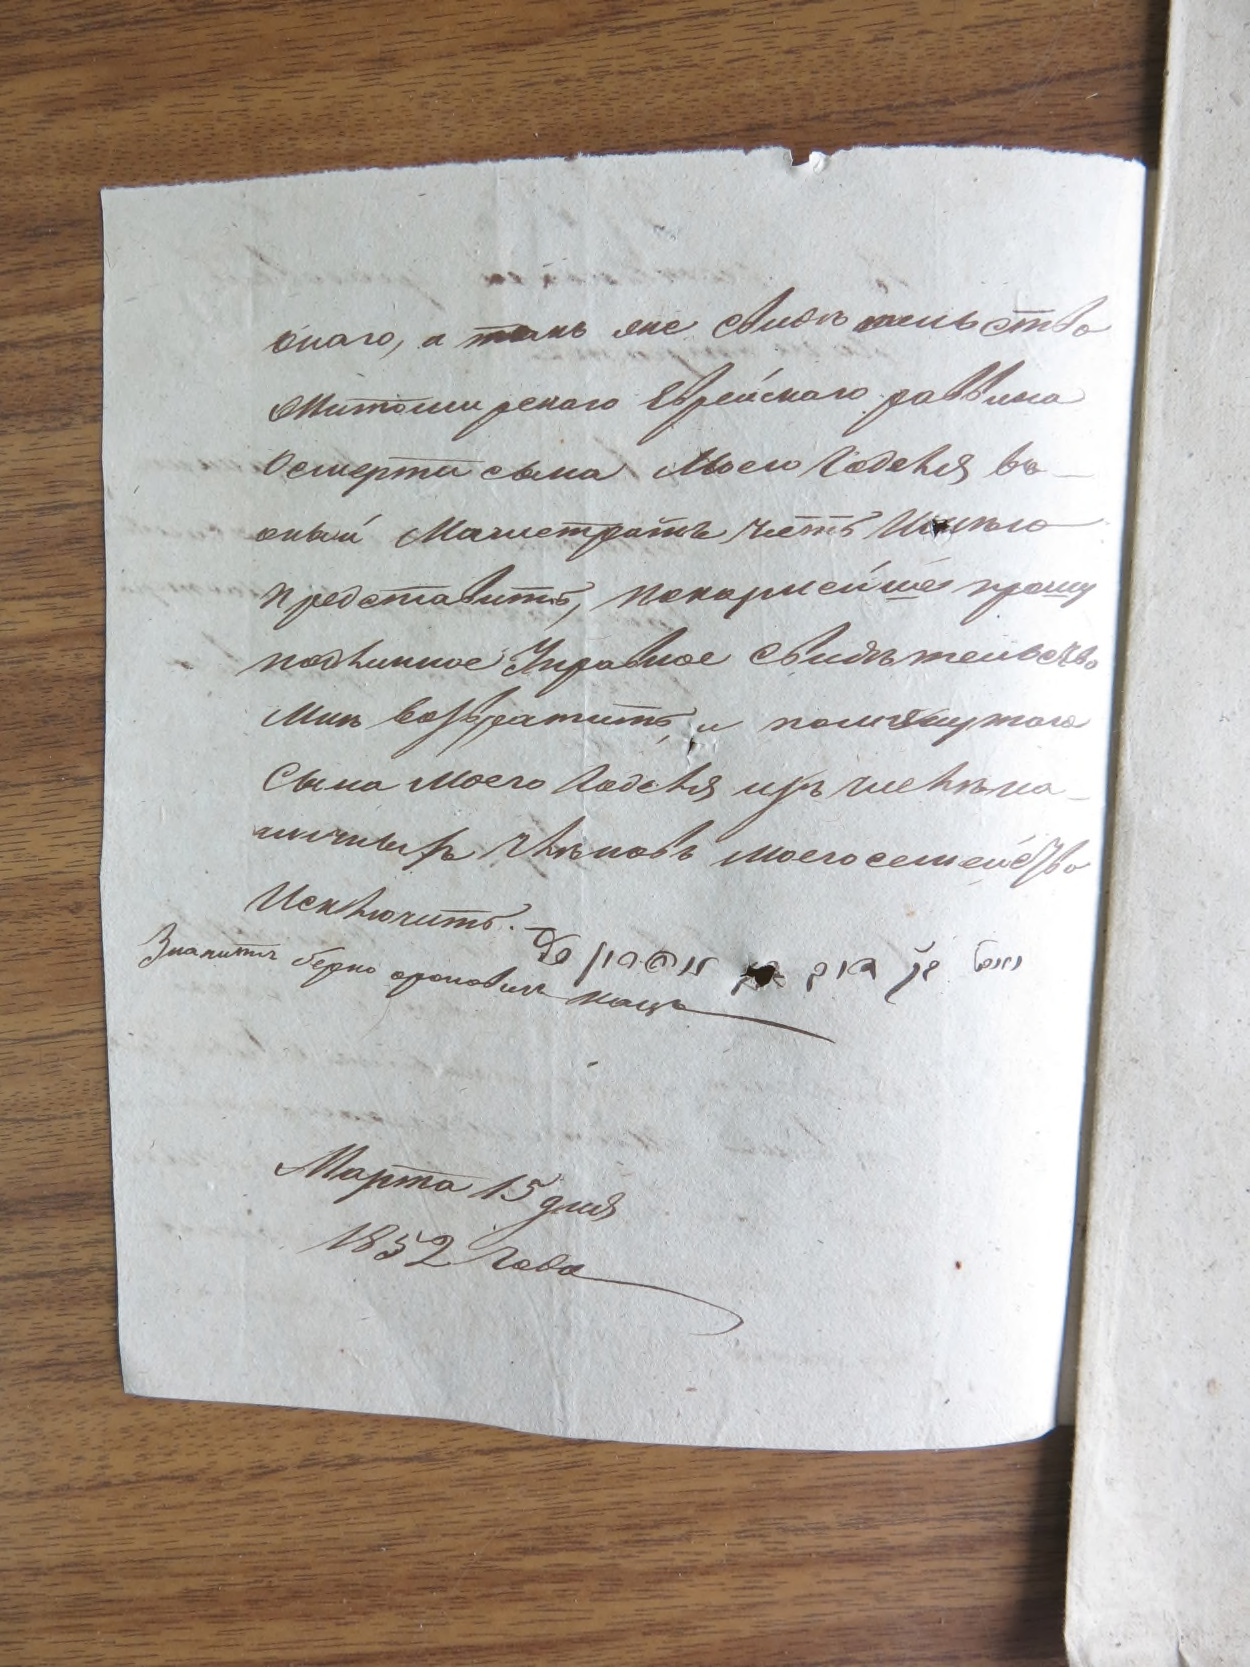 онаго, а такъ же свидѣтельство
Житомирскаго Еврейскаго раввина
О смерти сына Моего Годеля въ
оный Магистратъ честь Имѣю
представить, покарнейше прошу
подлинное Управное свидѣтельство
Мнѣ возвратить, и помянутого
Сына моего Годеля изъ числѣ на
личныхъ членовъ моего семейства
Исключить. —
Значитъ берко ароновичъ кацъ
Марта 15 дня
1852 Года